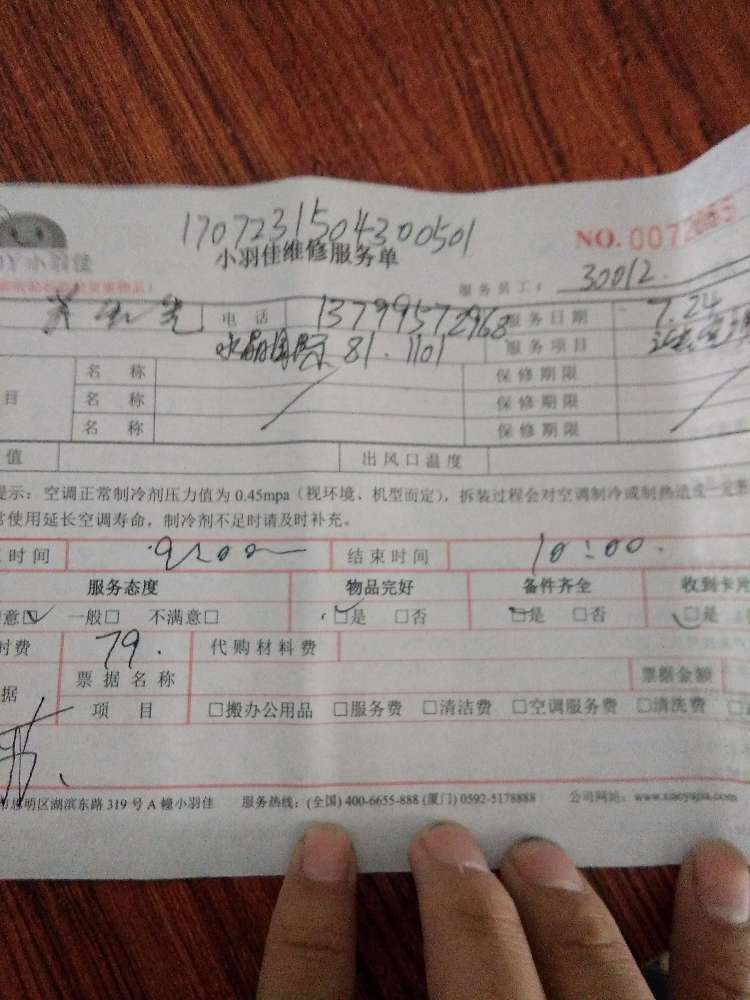 1707231504300501
小羽佳维修服务单
NO.007
小羽佳
服务员工: 30012.
电话 13799572968 服务日期 7.24
水晶国际 81.1101 服务项目
名称 保修期限
目 名称 保修期限
名称 保修期限
值 出风口温度
提示:空调正常制冷剂压力值为0.45mpa(视环境、机型而定),拆装过程会对空调制冷或制热造成一定影
常使用延长空调寿命,制冷剂不足时请及时补充。
时间 9:00 结束时间 10:00.
服务态度 物品完好 备件齐全 收到卡片
意☑ 一般□ 不满意□ ☑是 □否 ☑是 □否 ☑是
时费 79. 代购材料费
据 票据名称 票据金额
项目 □搬办公用品 □服务费 □清洁费 □空调服务费 □清洗费
市思明区湖滨东路319号A幢小羽佳 服务热线:(全国)400-6655-888(厦门)0592-5178888 公司网站:www.xiaoyujia.com